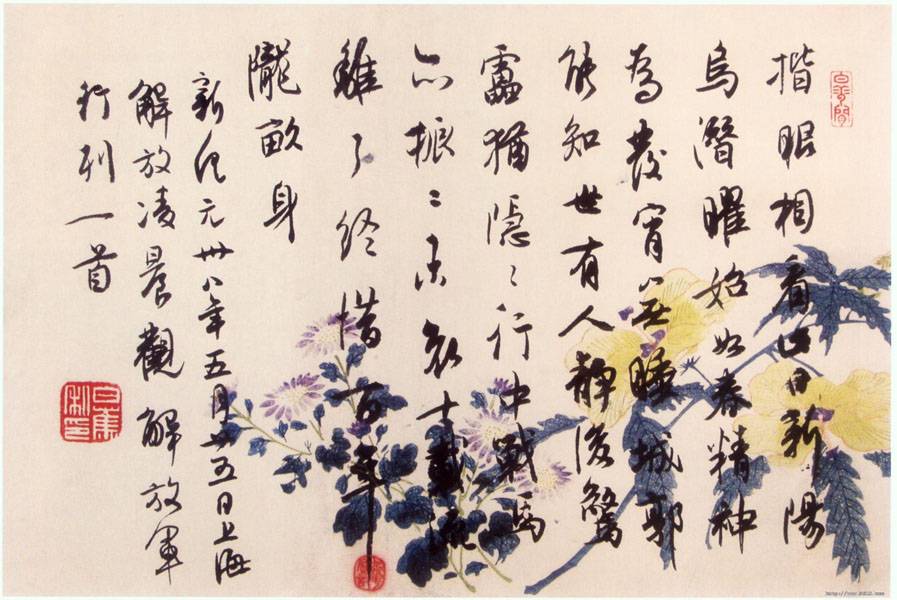 揩眼相看此日新陽
烏潛曜始如春精神
為發宵無睡城郭
能知世有人靜後驚
雷猶隱〻行中戰馬
亦振〻哀十載流
離了終惜百年
隴畝身
新紀元卅八年五月廿五日上海
解放凌晨觀解放軍
行列一首